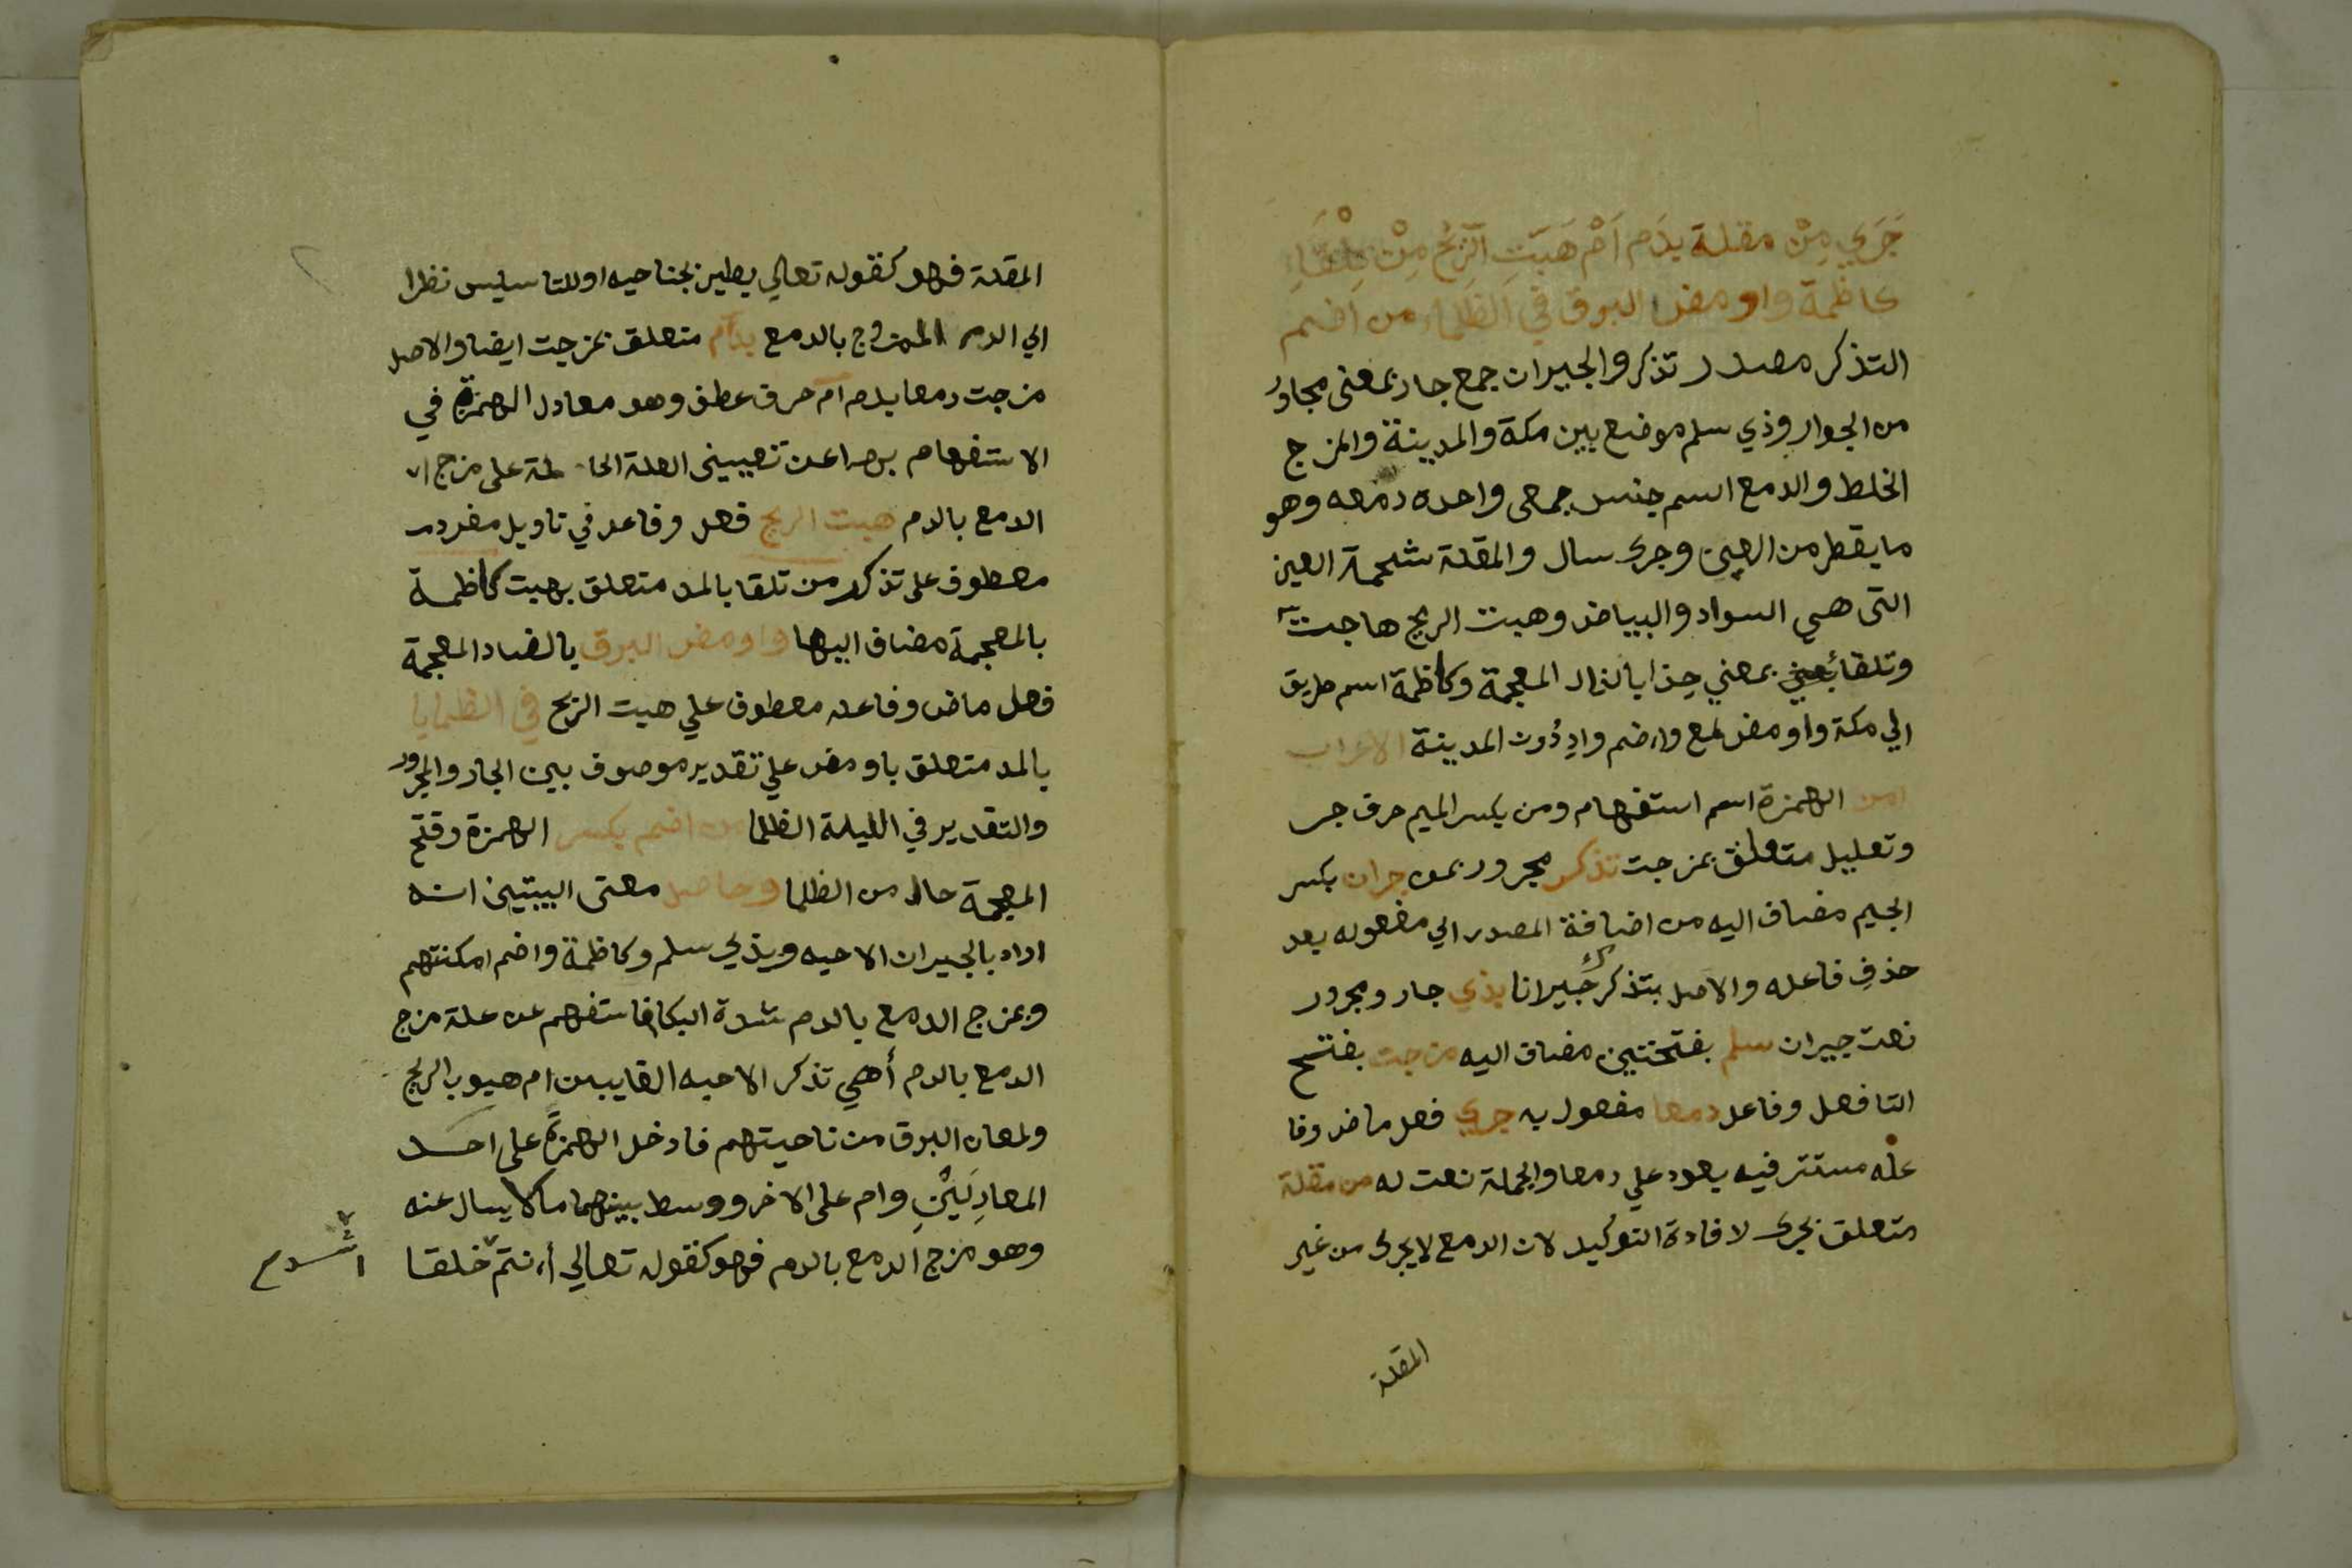 جَرَي مِنْ مقلة بدَم اَمْ هَبَّتِ الرِّيحُ مِنْ تِلْقَاءِ
كاظمة واومض البرق في الظلماء من اضم
التذكر مصدر تذكر والجيران جمع جار بمعنى مجاورُ
من الجوار وذي سلم موضع بين مكة والمدينة والمزج
الخلط والدمع اسم جنس جمعى واحده دمعه وهو
ما يقطر من العين وجرى سال والمقلة شحمة العين
التى هي السواد والبياض وهبت الريح هاجت
وتلقا بمعني حذا بالذال المعجمة وكاظمة اسم طريق
الي مكة واومض لمع واضم وادٍ دُون المدينة الاعراب
امن الهمزة اسم استفهام ومن بكسر الميم حرف جر
وتعليل متعلق بمزجت تذكر مجرور بمن جران بكسر
الجيم مضاف اليه من اضافة المصدر الي مفعوله بعد
حذف فاعله والاصل بتذكرك جيرانا بذي جار ومجرور
نعت جيران سلم بفتحتين مضاف اليه مزجت بفتح
التا فعل وفاعل دمعا مفعول به جري فعل ماض وفا
عله مستتر فيه يعود علي دمعا والجملة نعت له من مقلة
متعلق بجرى لافادة التوكيد لان الدمع لا يجرى من غير
المقلة
المقلة فهو كقوله تعالي يطير بجناحيه او للتاسيس نظرا
الي الدم الممزوج بالدمع بدم متعلق بمزجت ايضا والاصل
مزجت دمعا بدم ام حرف عطف وهو معادل الهمزة في
الاستفهام بها عن تعيينى العلة الحا ملة على مزج
الدمع بالدم هبت الريح فعل وفاعل في تاويل مفرد
معطوف على تذكر من تلقا بالمد متعلق بهبت كاظمة
بالمعجمة مضاف اليها واومض البرق بالضاد المعجمة
فعل ماض وفاعله معطوف علي هبت الريح في الظلما
بالمد متعلق باومض علي تقدير موصوف بين الجار والمجرور
والتقدير في الليلة الظلما من اضم بكسر الهمزة وفتح
المعجمة حال من الظلما وحاصل معنى البيتين انه
اراد بالجيران الاحبه وبذي سلم وكاظمة واضم امكنتهم
وبمزج الدمع بالدم شدة البكا فاستفهم عن علة مزج
الدمع بالدم أهي تذكر الاحبه الغايبين ام هبوب الريح
ولمعان البرق من ناحيتهم فادخل الهمزة على احد
المعادِلَيْنِ وام على الاخر ووسط بينهما ما لا يسال عنه
وهو مزج الدمع بالدم فهو كقوله تعالي أانتم خلقا
اشد م